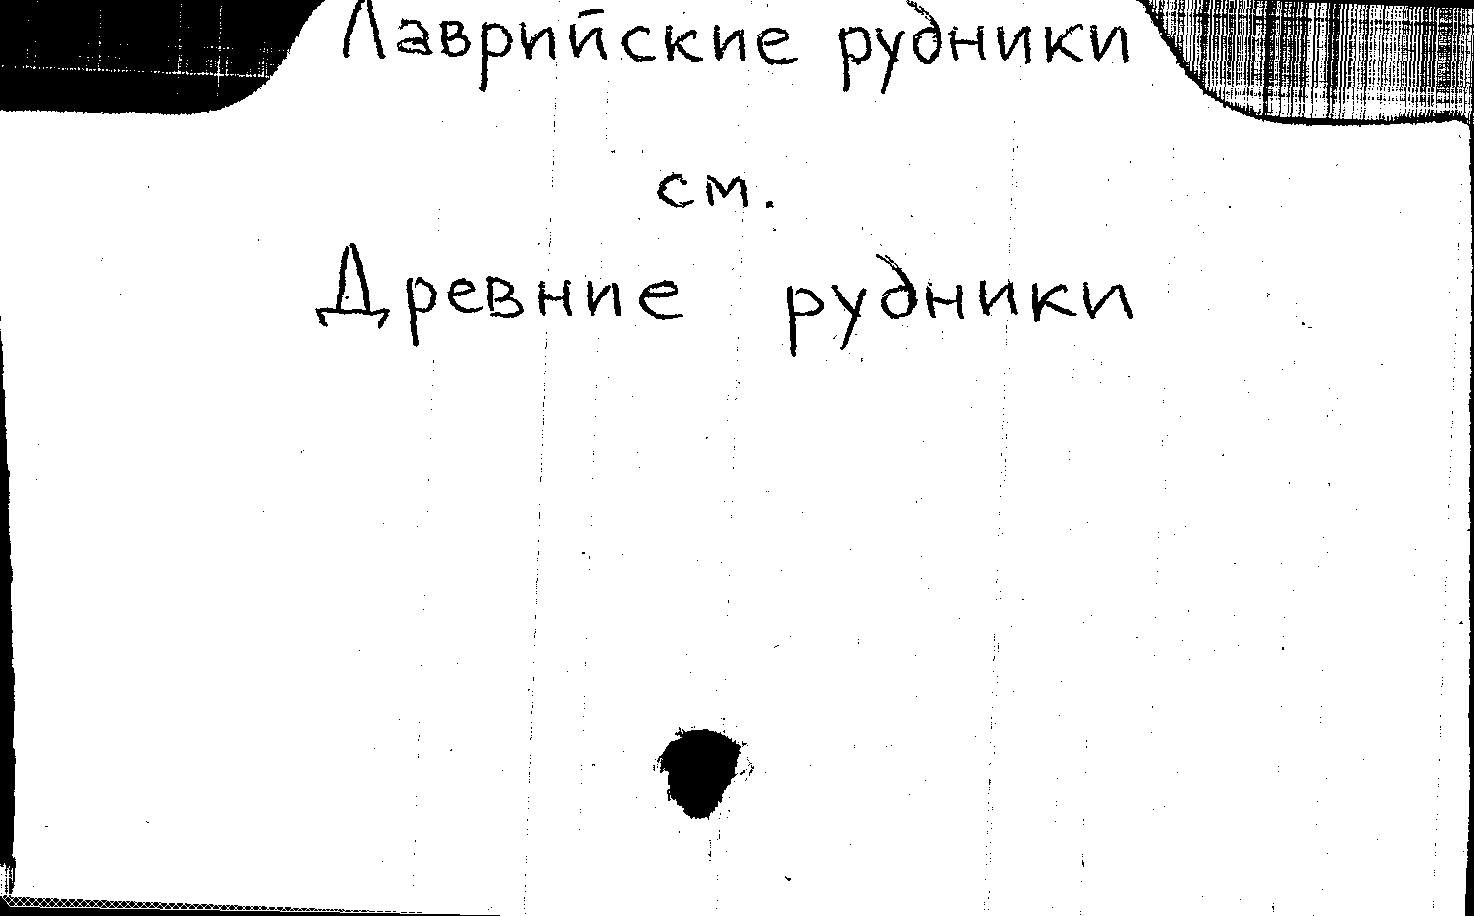 Лаврийские рудники
см.
Древние рудники